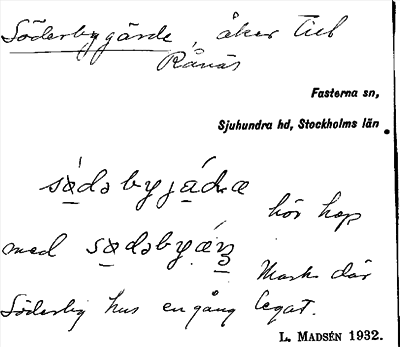 Söderbygärde, åker till
Rånäs
Fasterna sn,
Sjuhundra hd, Stockholms län.
hör hop
med
Mark där
Söderby hus en gång legat.
L. MADSÉN 1932.